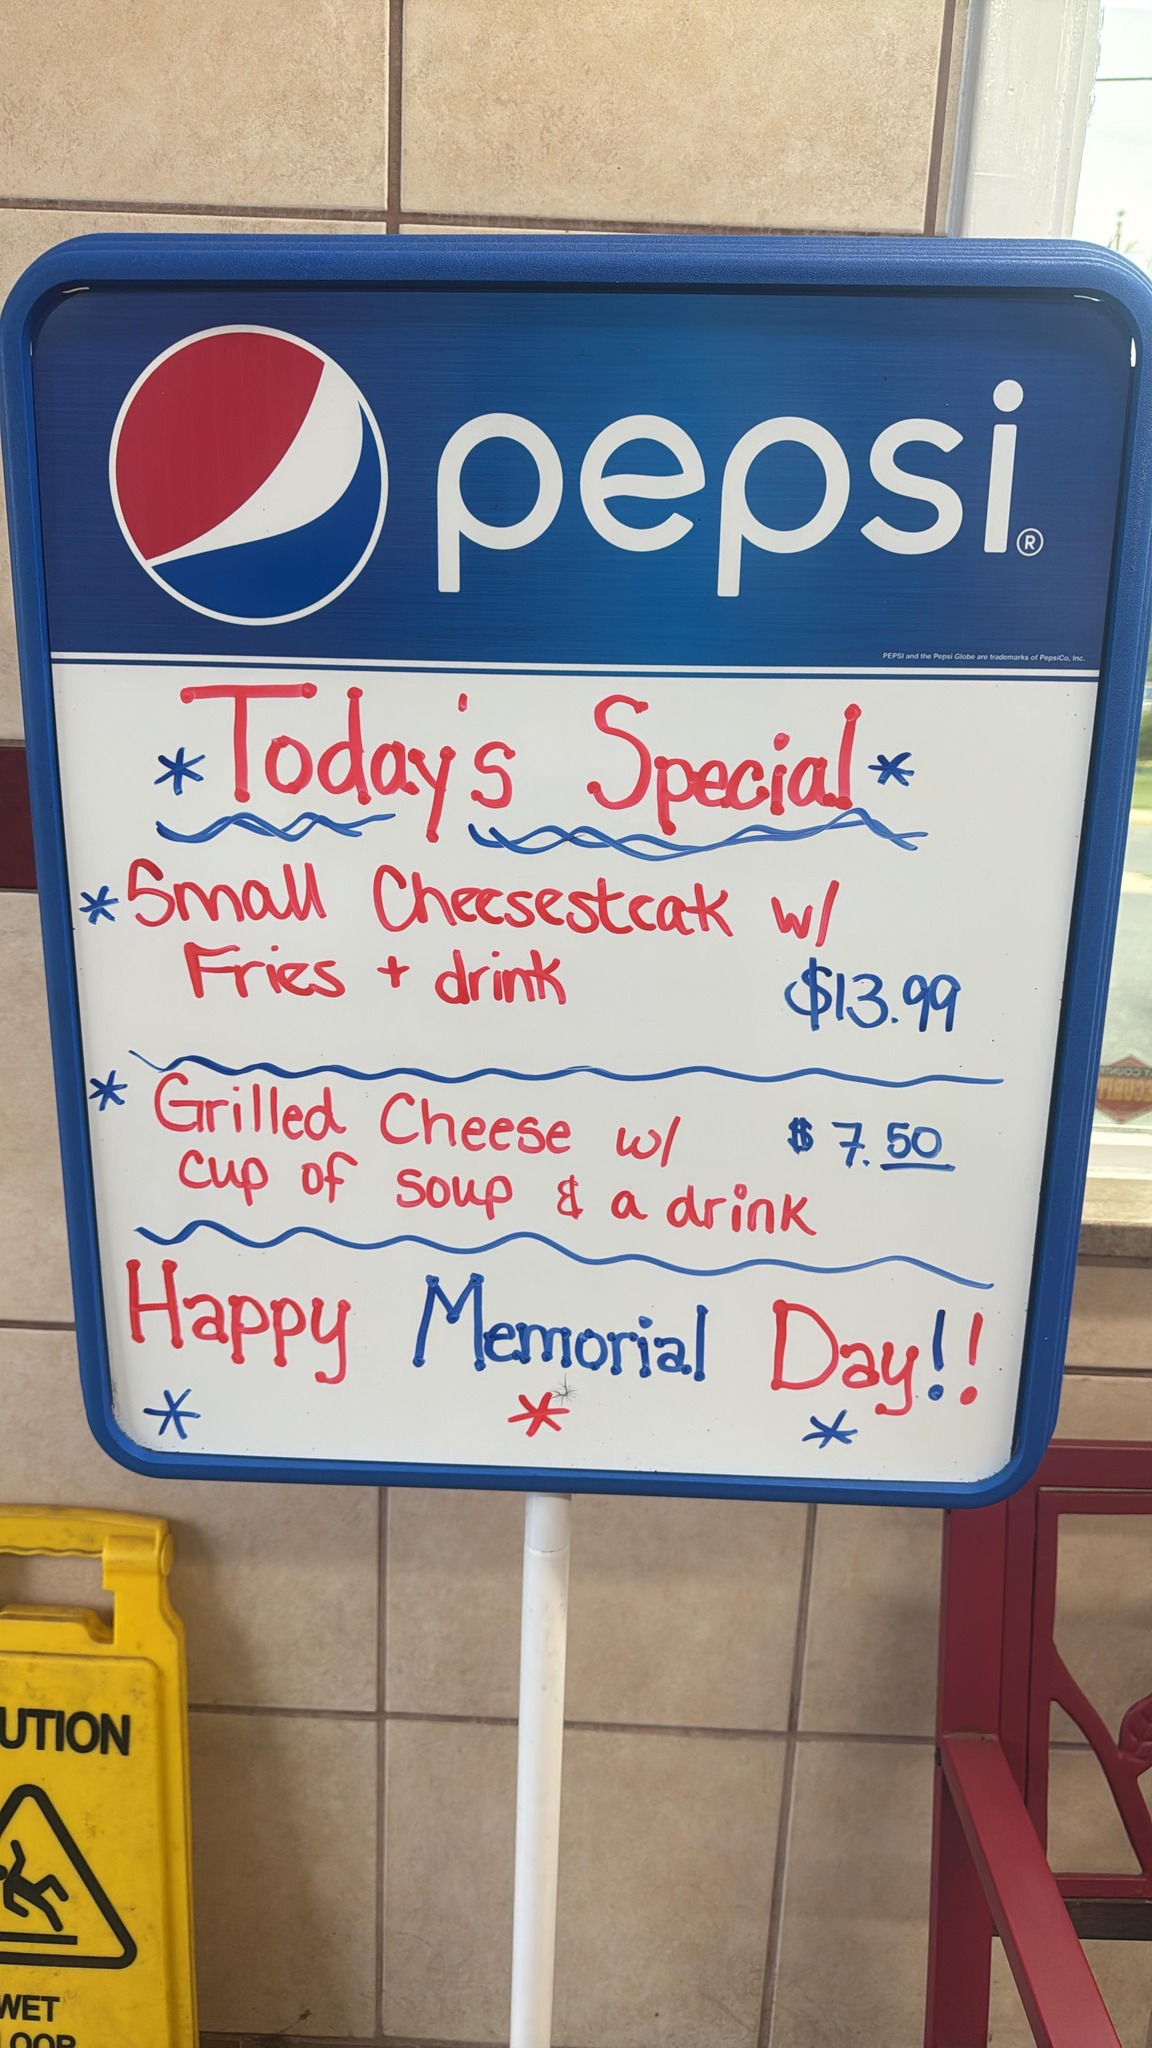 pepsi®
PEPSI and the Pepsi Globe are trademarks of PepsiCo, Inc.
* Today's Special *
* Small Cheesesteak w/
Fries + drink $13.99
* Grilled Cheese w/ $7.50
cup of soup & a drink
Happy Memorial Day!!
* * *
UTION
WET
LOOR